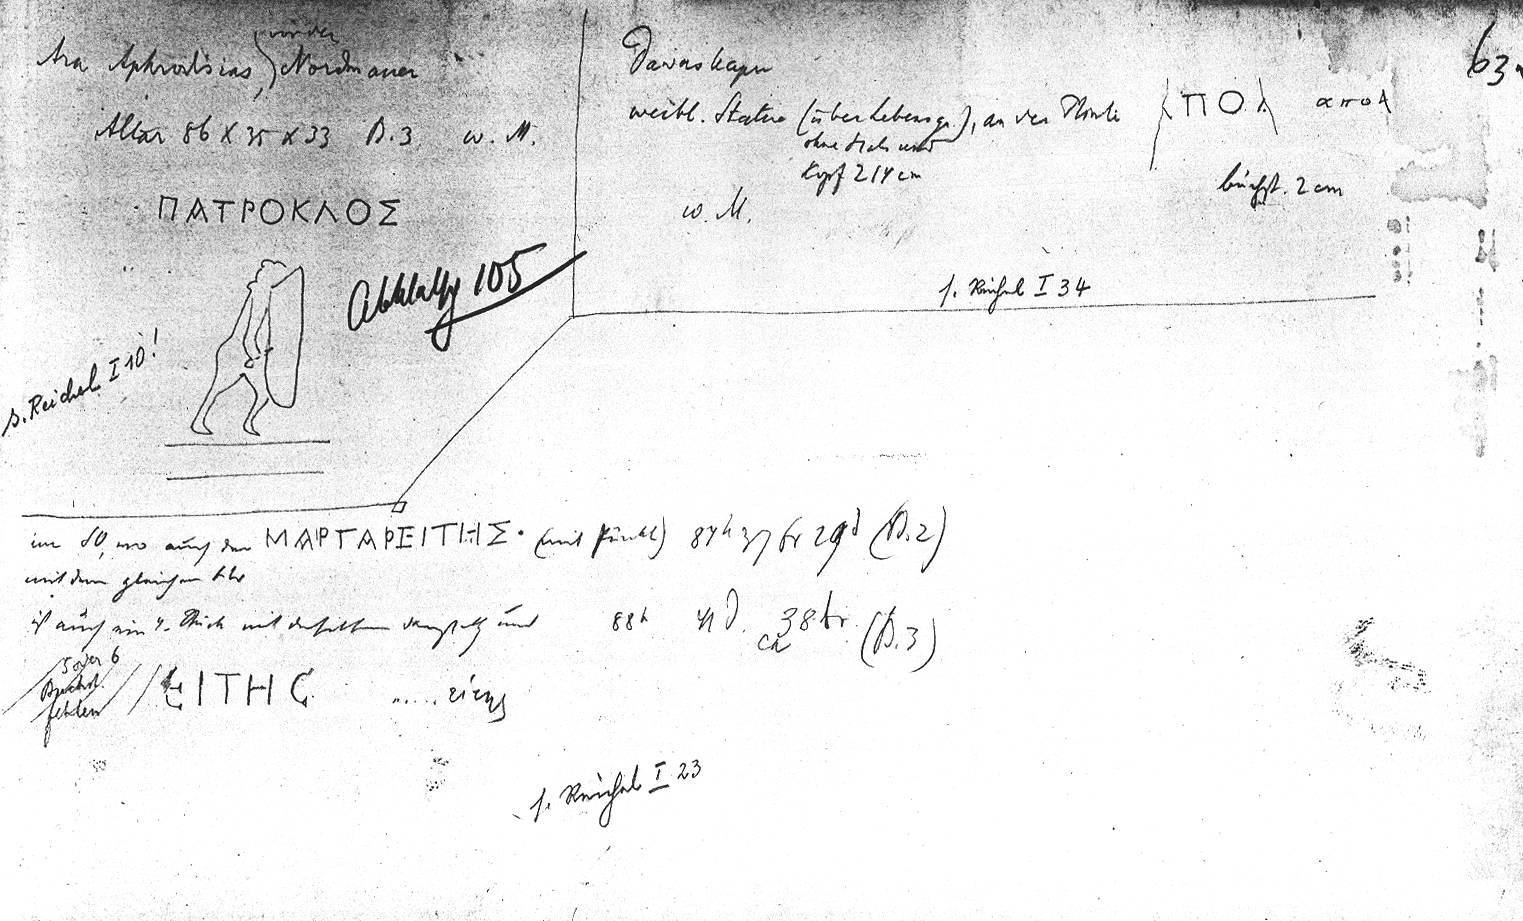 Ara Aphrodisias, Nordmauer
Altar 86 X 35 X 33 B. 3 w. M.
ΠΑΤΡΟΚΛΟΣ
Abklatsch 105
s. Reichel I 10!
weibl. Statue (über Lebensgr.), an der Plinthe
ohne und
Kopf 214 cm
w. M.
ΠΟΛ απολ
buchst. 2 cm
s. Reichel I 34
63
im SO, wo auch der ΜΑΡΓΑΡΕΙΤΗΣ · (mit Punkt) 87h 37 br 29d (B. 2)
mit dem gleichen
ist auch ein 4. Stück mit derselben und 88h 41 d. ca 38 br. (B. 3)
5 oder 6
Buchst.
fehlen
ΕΙΤΗΣ ..... είτης
s. Reichel I 23